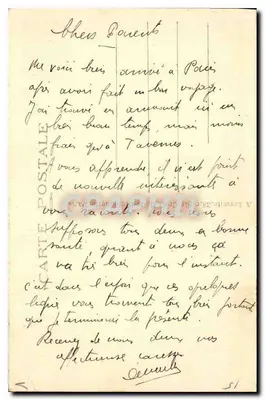 Chers Parents
Me voici bien arrivé à Paris
après avoir fait un bon voyage.
J'ai trouvé en arrivant ici un
très beau temps, mais moins
frais qu'à Tavernes.
vous apprendre, il n'est point
de nouvelle intéressante à
vous
supposons tous deux en bonne
santé, quant à nous ça
va très bien pour l'instant.
C'est dans l'espoir que ces quelques
lignes vous trouvent très bien portant
que je termine la présente.
Recevez de nous deux nos
affectueuses caresses
CARTE POSTALE
51